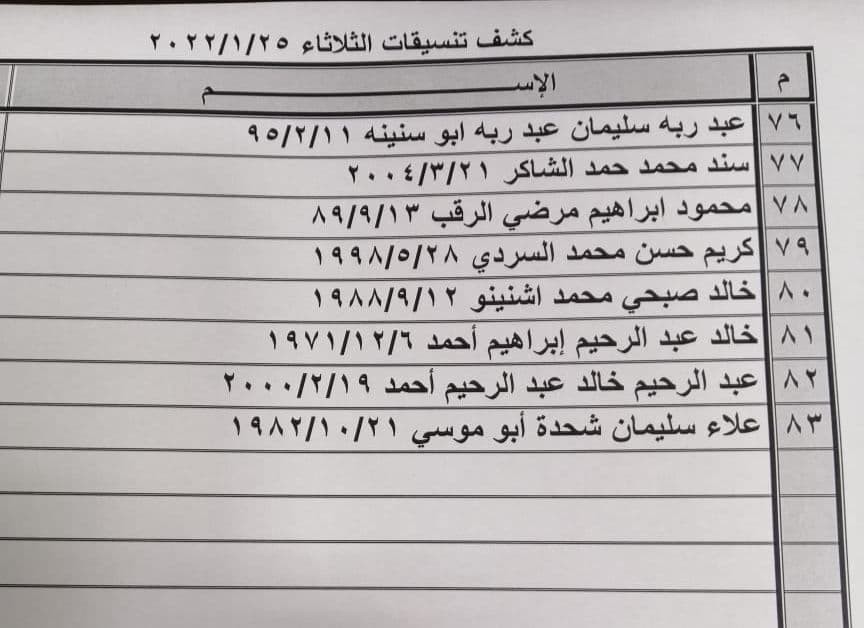 كشف تنسيقات الثلاثاء ٢٠٢٢/١/٢٥
م الإســـــــــــــــــم
٧٦ عبد ربه سليمان عبد ربه ابو سنينه ٩٥/٢/١١
٧٧ سند محمد حمد الشاكر ٢٠٠٤/٣/٢١
٧٨ محمود ابراهيم مرضي الرقب ٨٩/٩/١٣
٧٩ كريم حسن محمد السردي ١٩٩٨/٥/٢٨
٨٠ خالد صبحي محمد اشنينو ١٩٨٨/٩/١٢
٨١ خالد عبد الرحيم إبراهيم أحمد ١٩٧١/١٢/٦
٨٢ عبد الرحيم خالد عبد الرحيم أحمد ٢٠٠٠/٢/١٩
٨٣ علاء سليمان شحدة أبو موسي ١٩٨٢/١٠/٢١